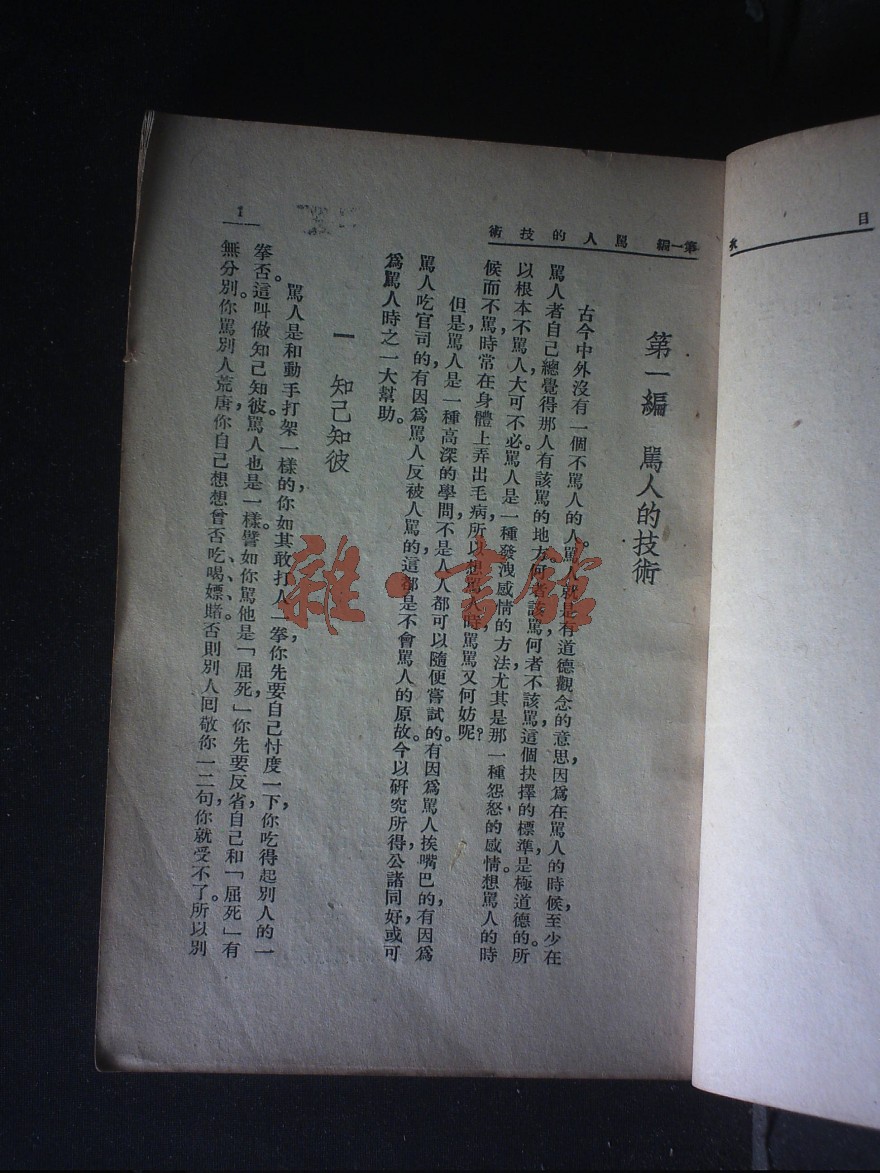 目
次
第一編 罵人的技術
第一編 罵人的技術
古今中外沒有一個不罵人的人。罵人就是有道德觀念的意思,因爲在罵人的時候,至少在
罵人者自己總覺得那人有該罵的地方。何者該罵,何者不該罵,這個抉擇的標準,是極道德的。所
以根本不罵人,大可不必。罵人是一種發洩感情的方法,尤其是那一種怨怒的感情。想罵人的時
候而不罵,時常在身體上弄出毛病,所以想罵人時,罵罵又何妨呢?
但是,罵人是一種高深的學問,不是人人都可以隨便嘗試的。有因爲罵人挨嘴巴的,有因爲
罵人吃官司的,有因爲罵人反被人罵的,這都是不會罵人的原故。今以硏究所得,公諸同好,或可
爲罵人時之一大幫助。
一 知己知彼
罵人是和動手打架一樣的,你如其敢打人一拳,你先要自己忖度一下,你吃得起別人的一
拳否。這叫做知己知彼。罵人也是一樣。譬如你罵他是「屈死」,你先要反省,自己和「屈死」有
無分別。你罵別人荒唐,你自己想想曾否吃、喝、嫖、賭。否則別人回敬你一二句,你就受不了。所以別
1
雜·書館